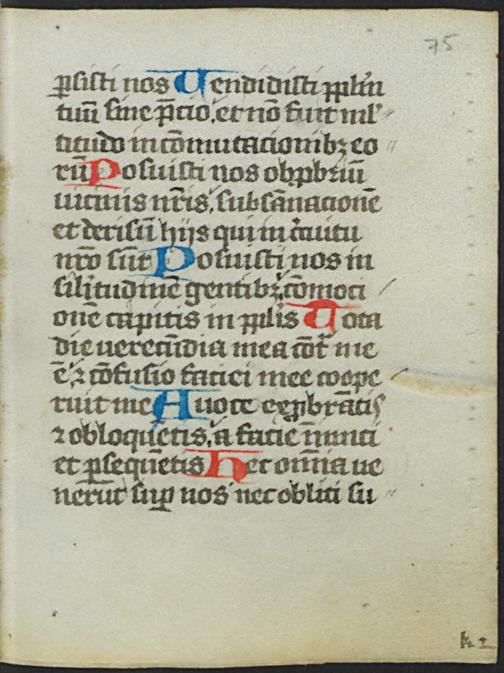 75
ꝑsisti nos Uendidisti ppl̄m
tuū sine p̄cio, et nō fuit ml̄
titudo in cōmutacionibꝫ eo
rū Posuisti nos obꝓbriū
uicinis nr̄is, subsānacionē
et derisū hijs qui in c̄cuitu
nr̄o sūt Posuisti nos in
silitudinē gentibꝫ, cōmoci
onē capitis in ppl̄is Tota
die uerecūdia mea cōt̄ me
ē, ⁊ cōfusio faciei mee coope
ruit me A uoce exꝓbrātis
⁊ obloquētis, a facie inimici
et ꝑsequētis Hec om̄ia ue
nerūt suꝑ nos nec obliti su
k 1